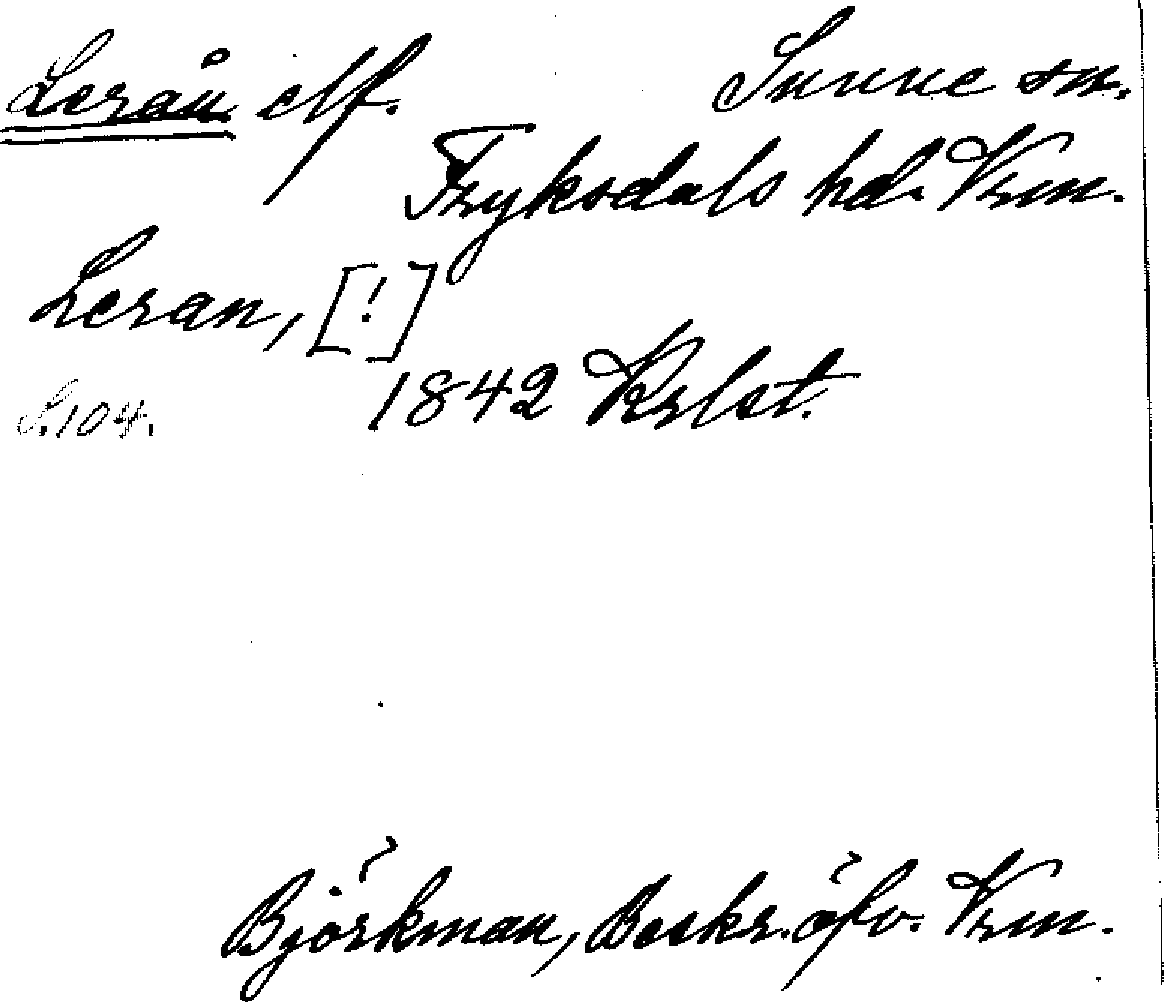 Lerån elf. Sunne sn.
Fryksdals hd. Vrm.
Leran, [!]
1842 Krlst.
S. 104.
Björkman, Beskr. öfv. Vrm.